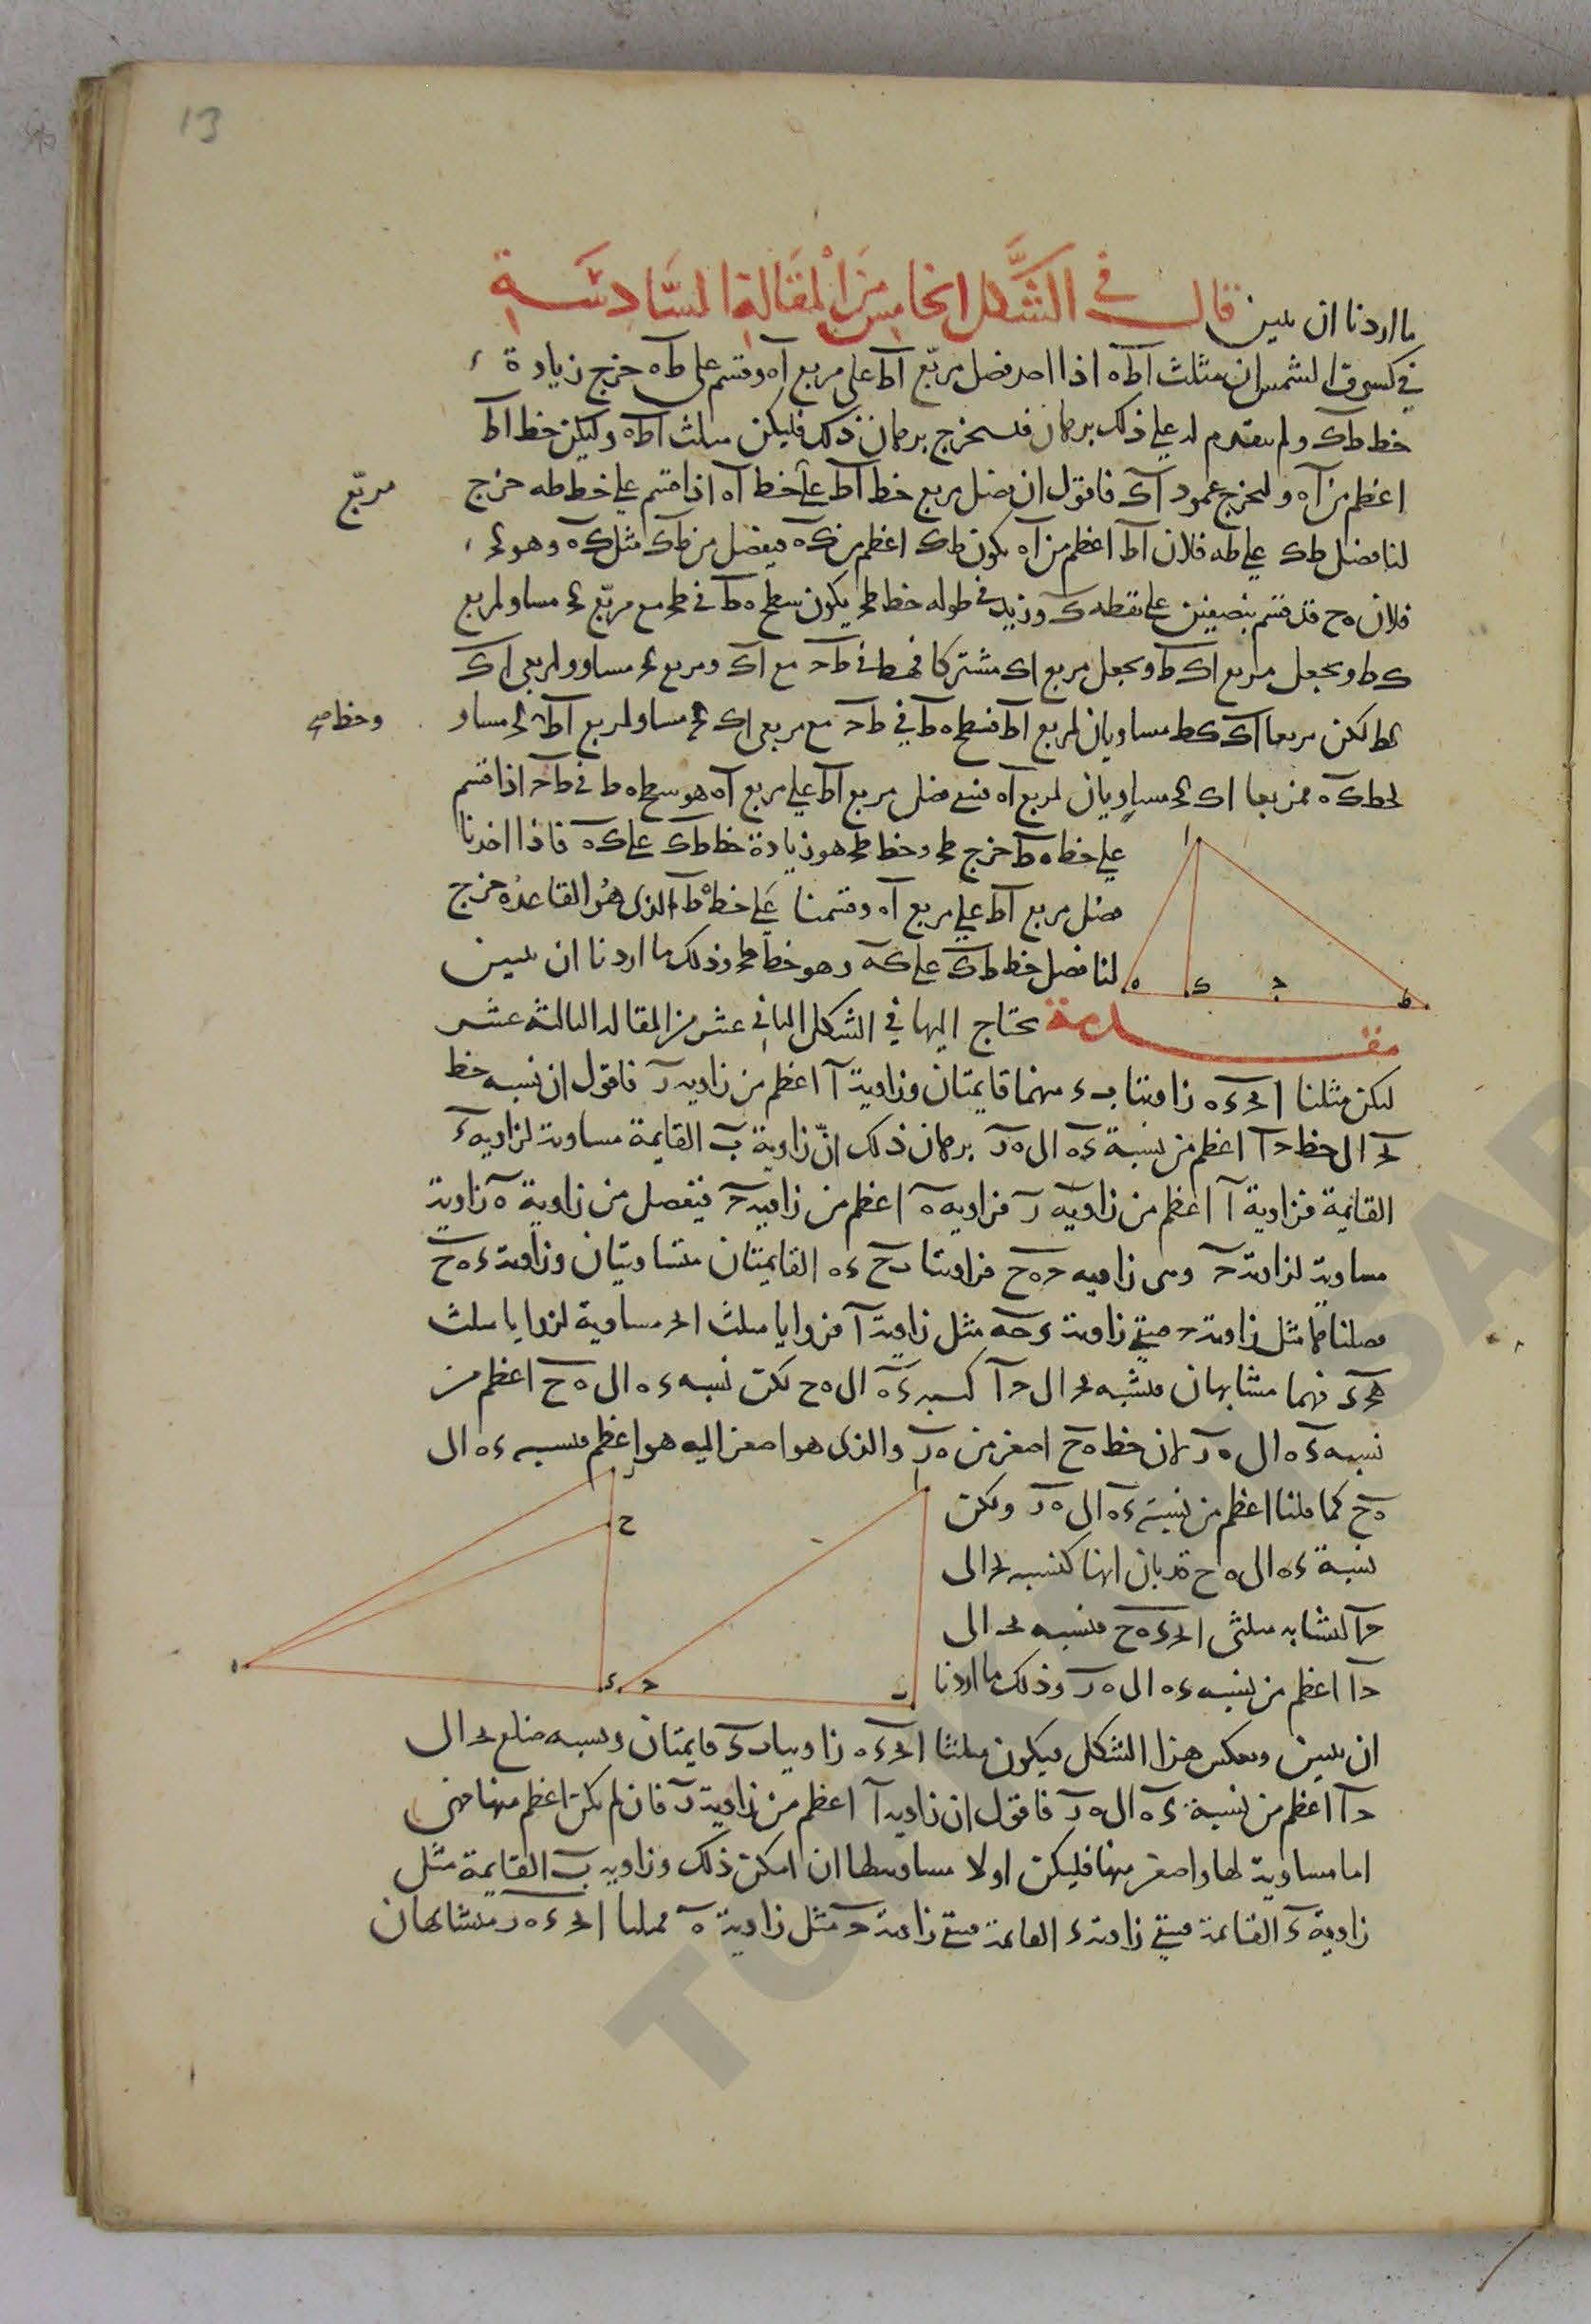 13
ما اردنا ان نبين قال في الشَّكل الخامس من المَقالة السَّادسَة
في كسوف الشمس ان مثلث اطه اذا اخذ فضل مربّع اط على مربع اه وقسم على طه خرج زيادة
خط طك ولم يتقدم له على ذلك برهان فلنستخرج برهان ذلك فليكن مثلث اطه وليكن خط اط
اعظم من اه وليخرج عمود اك فاقول ان فضل مربع خط اط على خط اه اذا قسم على خط طه خرج
مربّع
لنا فضل طك على طه فلان اط اعظم من اه يكون طك اعظم من كه فيفصل من طك مثل كه وهو كح
فلان ه ح قد قسم بنصفين على نقطة ك وزيد في طوله خط طح يكون سطح ه ط في طح مع مربّع كح مساو لمربع
ك ط ونجعل مربع اك ط ونجعل مربع اك مشتركا فه ط في ط ح مع اك ومربع كح مساوو لمربعي اك
كط لكن مربعا اك كط مساويان لمربع اط فسطح ه ط في ط ح مع مربعي اك كح مساو لمربع اط كح مساو
وخط
لخط كه فمربعا اك كح مساويان لمربع اه فتبقى فضل مربع اط على مربع اه هو سطح ه ط في ط ح اذا قسم
على خط ه ط خرج طح وخط طح هو زيادة خط طك على كه فاذا اخذنا
فضل مربع اط على مربع اه وقسمنا على خط ه ط الذى هو القاعدة خرج
لنا فضل خط طك على كه وهو خط طح وذلك ما اردنا ان نبين
ا ه ك ح ط
مقدمة نحتاج اليها في الشكل الثاني عشر من المقالة الثالثة عشر
ليكن مثلثا ابح ءه زاويتا ب ء منهما قايمتان وزاوية ا اعظم من زاوية ر فاقول ان نسبة خط
بح الى خط حا اعظم من نسبة ءه الى ه ر برهان ذلك انّ زاوية ب القايمة مساوية لزاوية ء
القايمة فزاوية ا اعظم من زاوية ر فزاوية ه اعظم من زاوية ح فيفصل من زاوية ه زاوية
مساوية لزاوية ح وهى زاوية ح ه ح فزاويتا بح ءه القايمتان متساويتان وزاوية ء ه ح
فصلناها مثل زاوية ح فبقى زاوية ء ح ه مثل زاوية ا فزوايا مثلث ابح مساوية لزوايا مثلث
ه ح ء فهما متشابهان فنسبة بح الى حا كنسبة ءه الى ه ح لكن نسبة ءه الى ه ح اعظم من
نسبة ءه الى ه ر لان خط ه ح اصغر من ه ر والذى هو اصغر اليه هو اعظم فنسبة ءه الى
ه ح كما قلنا اعظم من نسبة ءه الى ه ر ولكن
نسبة ءه الى ه ح قد بان انها كنسبة بح الى
حا لتشابه مثلثى ابح ءه ح فنسبة بح الى
حا اعظم من نسبة ءه الى ه ر وذلك ما اردنا
ر ح ه ء ا ح ب
ان نبين وبعكس هذا الشكل فيكون مثلثا ابح ءه زاويتا ب ء قايمتان ونسبة ضلع بح الى
حا اعظم من نسبة ءه الى ه ر فاقول ان زاوية ا اعظم من زاوية ر فان لم يكن اعظم منها فهى
اما مساوية لها واصغر منها فليكن اولا مساويتها ان امكن ذلك وزاوية ب القايمة مثل
زاوية ء القايمة فبقى زاوية ء القايمة فبقى زاوية ح مثل زاوية ه فمثلثا ابح ءه ر متشابهان